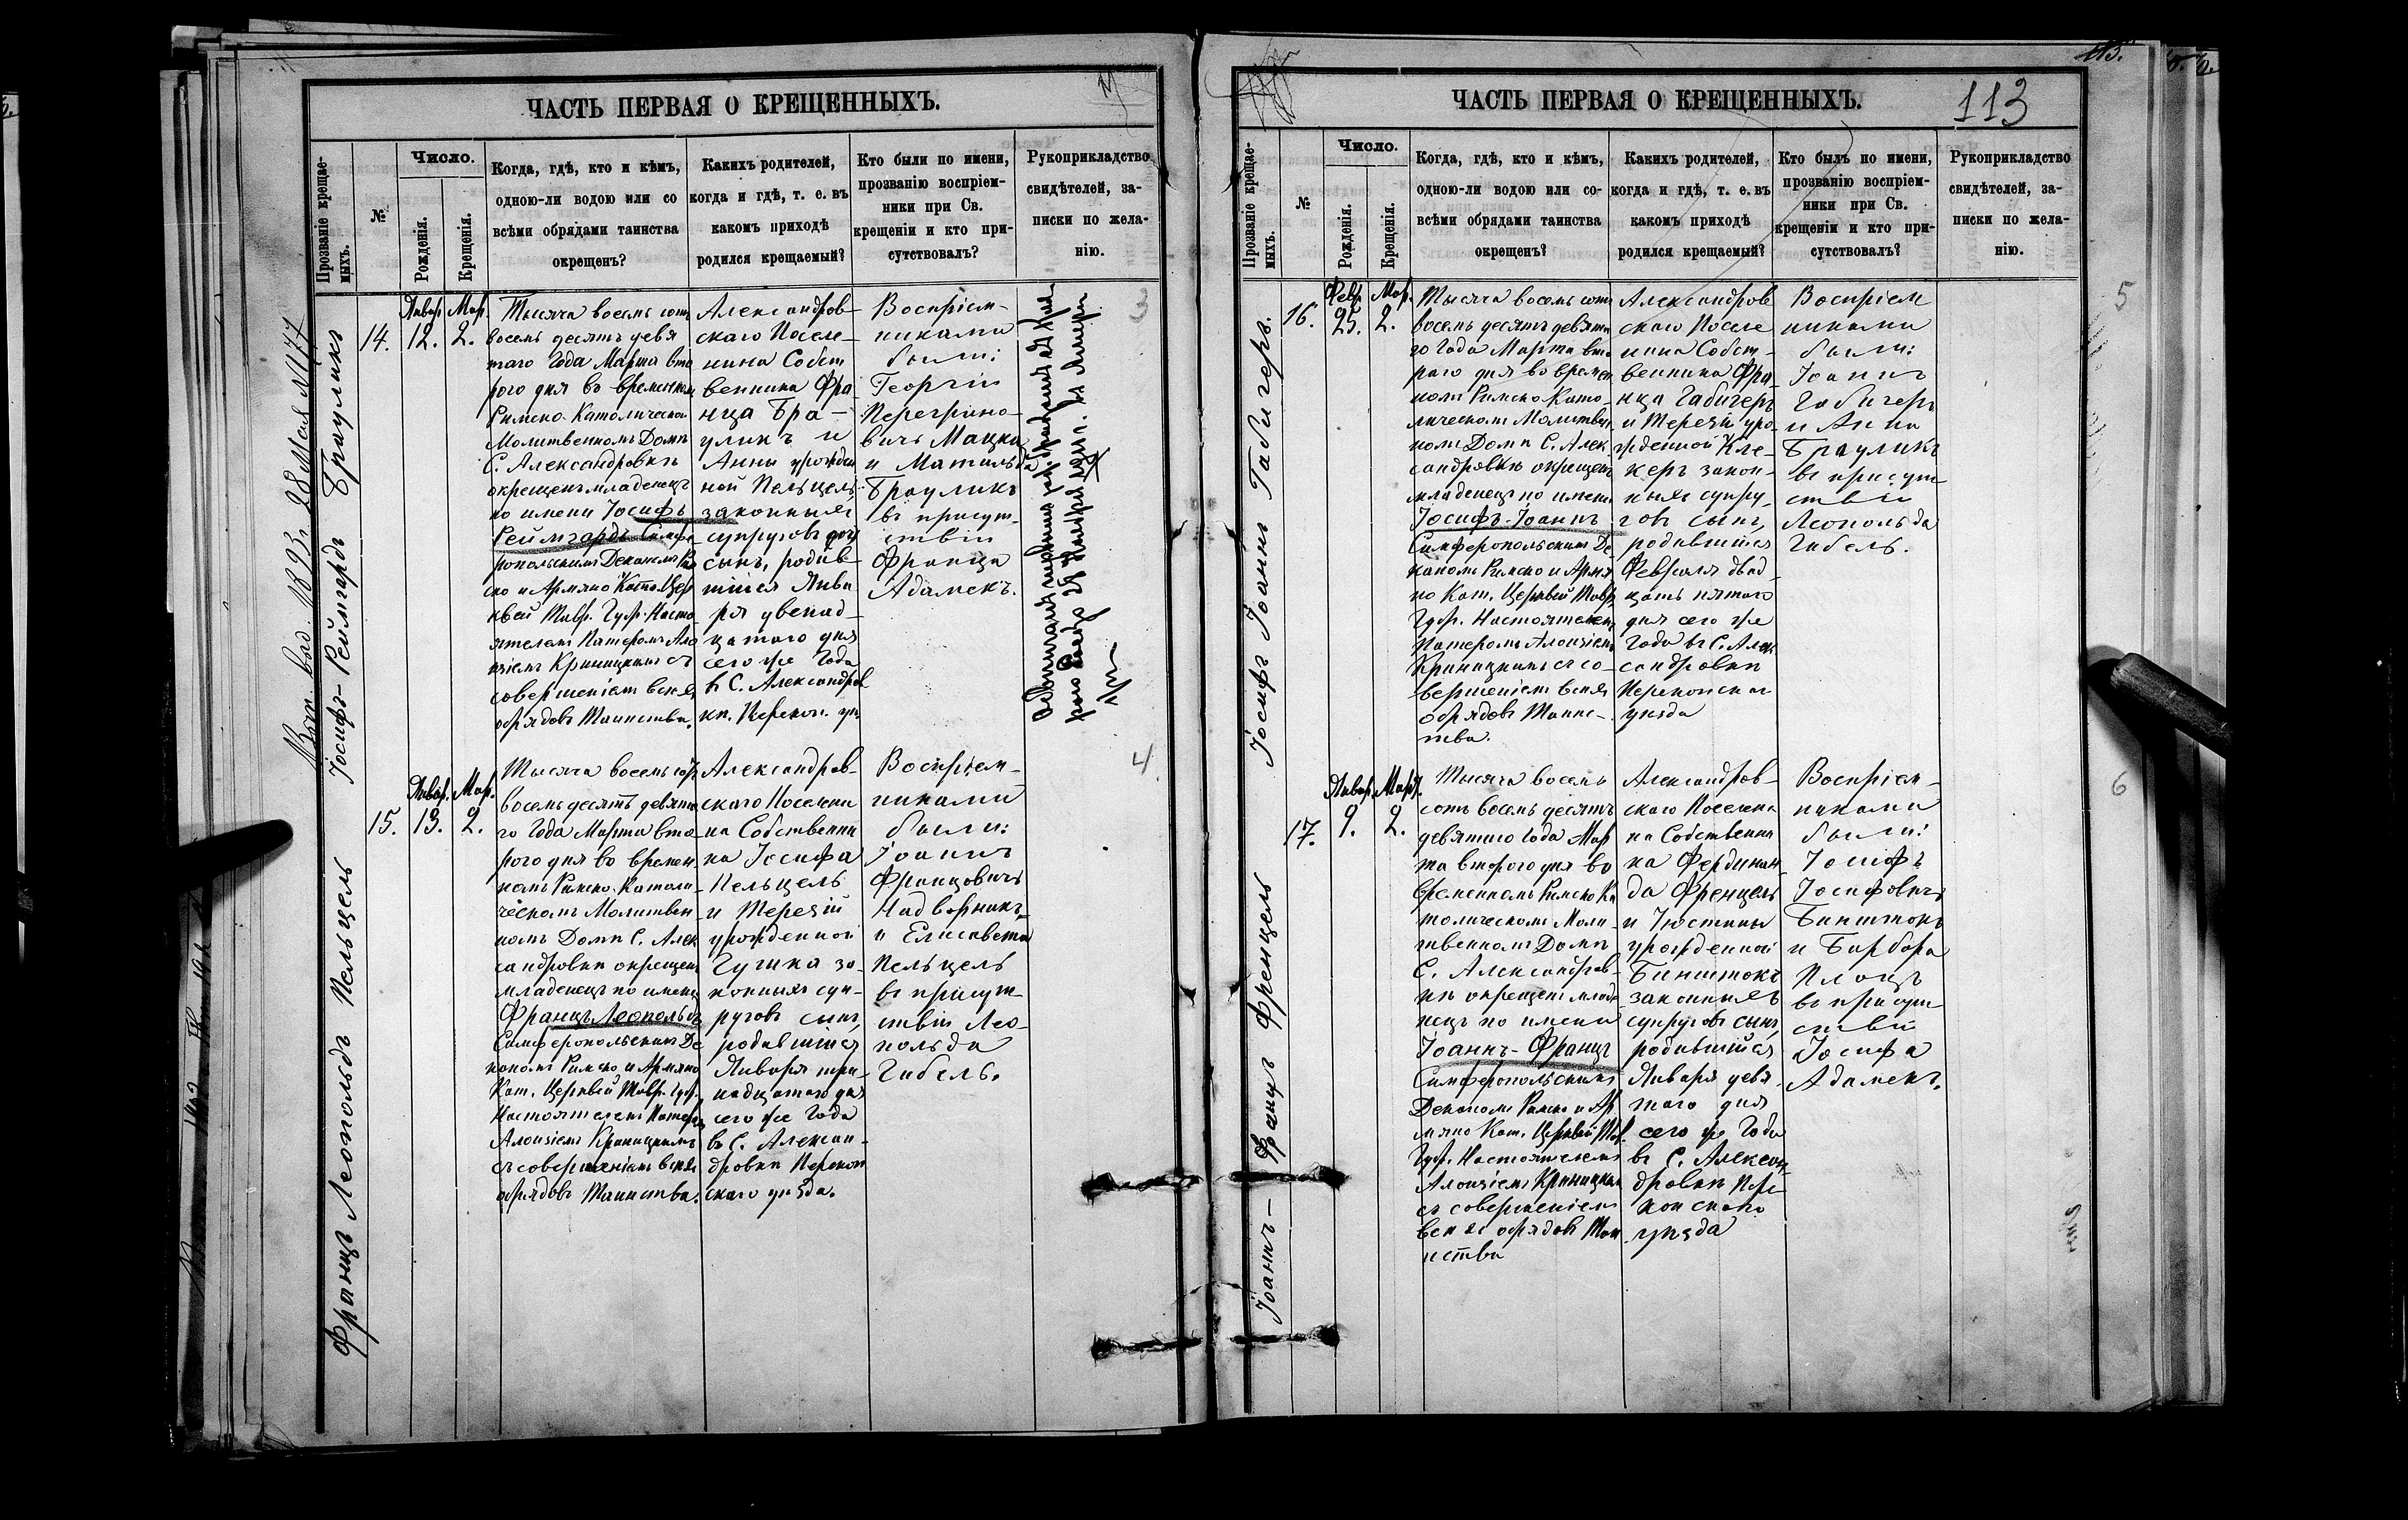 ЧАСТЬ ПЕРВАЯ О КРЕЩЕННЫХЪ.
Прозваніе крещае-
мыхъ.
№
Число.
Рожденія.
Крещенія.
Когда, гдѣ, кто и кѣмъ,
одною-ли водою или со
всѣми обрядами таинства
окрещенъ?
Какихъ родителей,
когда и гдѣ, т. е. въ
какомъ приходѣ
родился крещаемый?
Кто были по имени,
прозванію воспріем-
ники при Св.
крещеніи и кто при-
сутствовалъ?
Рукоприкладство
свидѣтелей, за-
писки по жела-
нію.
1893 г. 28 Мая № 177
Іосифъ-Реймгардъ Брауликъ
14.
Январ
12.
Мар.
2.
Тысяча восемь сотъ
восемь десятъ девя
таго Года Марта вто
рого дня во временном
Римско-Католическом
Молитвенномъ Домѣ
С. Александровкѣ
окрещенъ младенецъ
по имени Іосифъ
Реймгардъ Симфе
ропольскимъ Деканомъ Рим
ско и Армяно Като. Цер
квей Тавр. Губ. Насто
ятелемъ Патеромъ Ало
изіемъ Криницкимъ съ
совершеніемъ всѣхъ
обрядовъ Таинства.
Александров-
скаго Поселе-
нина Собст
венника Фра
нца Бра-
уликъ и
Анны урожден
ной Пельцель,
законныхъ
супруговъ
сынъ, родив-
шійся Янва
ря двенад-
цатого дня
сего же Года
въ С. Александров
кѣ. Перекоп. уѣз
Воспріем-
никами
были:
Георгій
Перегрино-
вичъ Мацка
и Матильда
Брауликъ
въ присут-
ствіи
Франца
Адамекъ.
3
Францъ Леопольдъ Пельцель
15.
Январ.
13.
Мар.
2.
Тысяча восемь сотъ
восемь десятъ девята
го Года Марта вто-
рого дня во времен
номъ Римско-Католи-
ческомъ Молитвен-
номъ Домѣ С. Алек
сандровкѣ окрещенъ
младенецъ по имени
Францъ Леопольдъ
Симферопольскимъ Де
каномъ Римско и Армяно
Кат. Церквей Тавр. Губ.
Настоятелемъ Патером
Алоизіемъ Криницкимъ
съ совершеніемъ всѣхъ
обрядовъ Таинства.
Александров-
скаго Поселени
на Собственни
ка Іосифа
Пельцель
и Терезіи
урожденной
Гугика за-
конныхъ суп-
руговъ сынъ,
родившійся
Января три-
надцатого дня
сего же Года
въ С. Алексан-
дровкѣ Перекоп
скаго уѣзда.
Воспріем-
никами
были:
Іоаннъ
Францовичъ
Надворникъ
и Елисавета
Пельцель
въ присут-
ствіи Лео-
польда
Гибель.
4
ЧАСТЬ ПЕРВАЯ О КРЕЩЕННЫХЪ.
113
Прозваніе крещае-
мыхъ.
№
Число.
Рожденія.
Крещенія.
Когда, гдѣ, кто и кѣмъ,
одною-ли водою или со-
всѣми обрядами таинства
окрещенъ?
Какихъ родителей,
когда и гдѣ, т. е. въ
какомъ приходѣ
родился крещаемый?
Кто былъ по имени,
прозванію воспріем-
ники при Св.
крещеніи и кто при-
сутствовалъ?
Рукоприкладство
свидѣтелей, за-
писки по жела-
нію.
Іосифъ Іоаннъ Габигеръ.
16.
Февр
25.
Мар.
2.
Тысяча восемь сотъ
восемь десятъ девята
го Года Марта вто
раго дня во времен
номъ Римско Като-
лическомъ Молитвен
номъ Домѣ С. Алек
сандровкѣ окрещенъ
младенецъ по имени
Іосифъ-Іоаннъ
Симферопольскимъ Де
каномъ Римско и Армя
но Кат. Церквей Тавр.
Губ. Настоятелемъ
Патеромъ Алоизіемъ
Криницкимъ съ со-
вершеніемъ всѣхъ
обрядовъ Таинс-
тва.
Александров
скаго Поселе
нина Собст-
венника Фра
нца Габигеръ
и Терезіи уро-
жденной Кле-
керъ закон-
ныхъ супру-
говъ сынъ,
родившійся
Февраля двад
цать пятого
дня сего же
Года въ С. Алек
сандровкѣ
Перекопскаг
уѣзда
Воспріем
никами
были:
Іоаннъ
Габигеръ
и Анна
Брауликъ
въ присут
ствіи
Леопольда
Гибель.
5
Іоаннъ - Францъ Френцель
17.
Январ.
9.
Март.
2.
Тысяча восемь
сотъ восемь десятъ
девятаго Года Мар
та второго дня во
временномъ Римско Ка
толическомъ Моли-
твенномъ Домѣ
С. Александров-
кѣ окрещенъ младе
нецъ по имени
Іоаннъ-Францъ
Симферопольскимъ
Деканомъ Римско и Ар
мяно Кат. Церквей Тав.
Губ. Настоятелемъ
Алоизіемъ Криницким
съ совершеніемъ
всѣхъ обрядовъ Таи
нства
Александров-
скаго Поселени
на Собственни
ка Фердинан
да Френцель
и Юстины
урожденной
Бинштокъ
законныхъ
супруговъ сынъ,
родившійся
Января девя-
таго дня
сего же Года
въ С. Алексан
дровкѣ Пере
копскаго
уѣзда
Воспріем-
никами
были:
Іосифъ
Іосифовичъ
Бинштокъ
и Барбара
Плоцъ
въ присут
ствіи
Іосифа
Адамекъ.
6